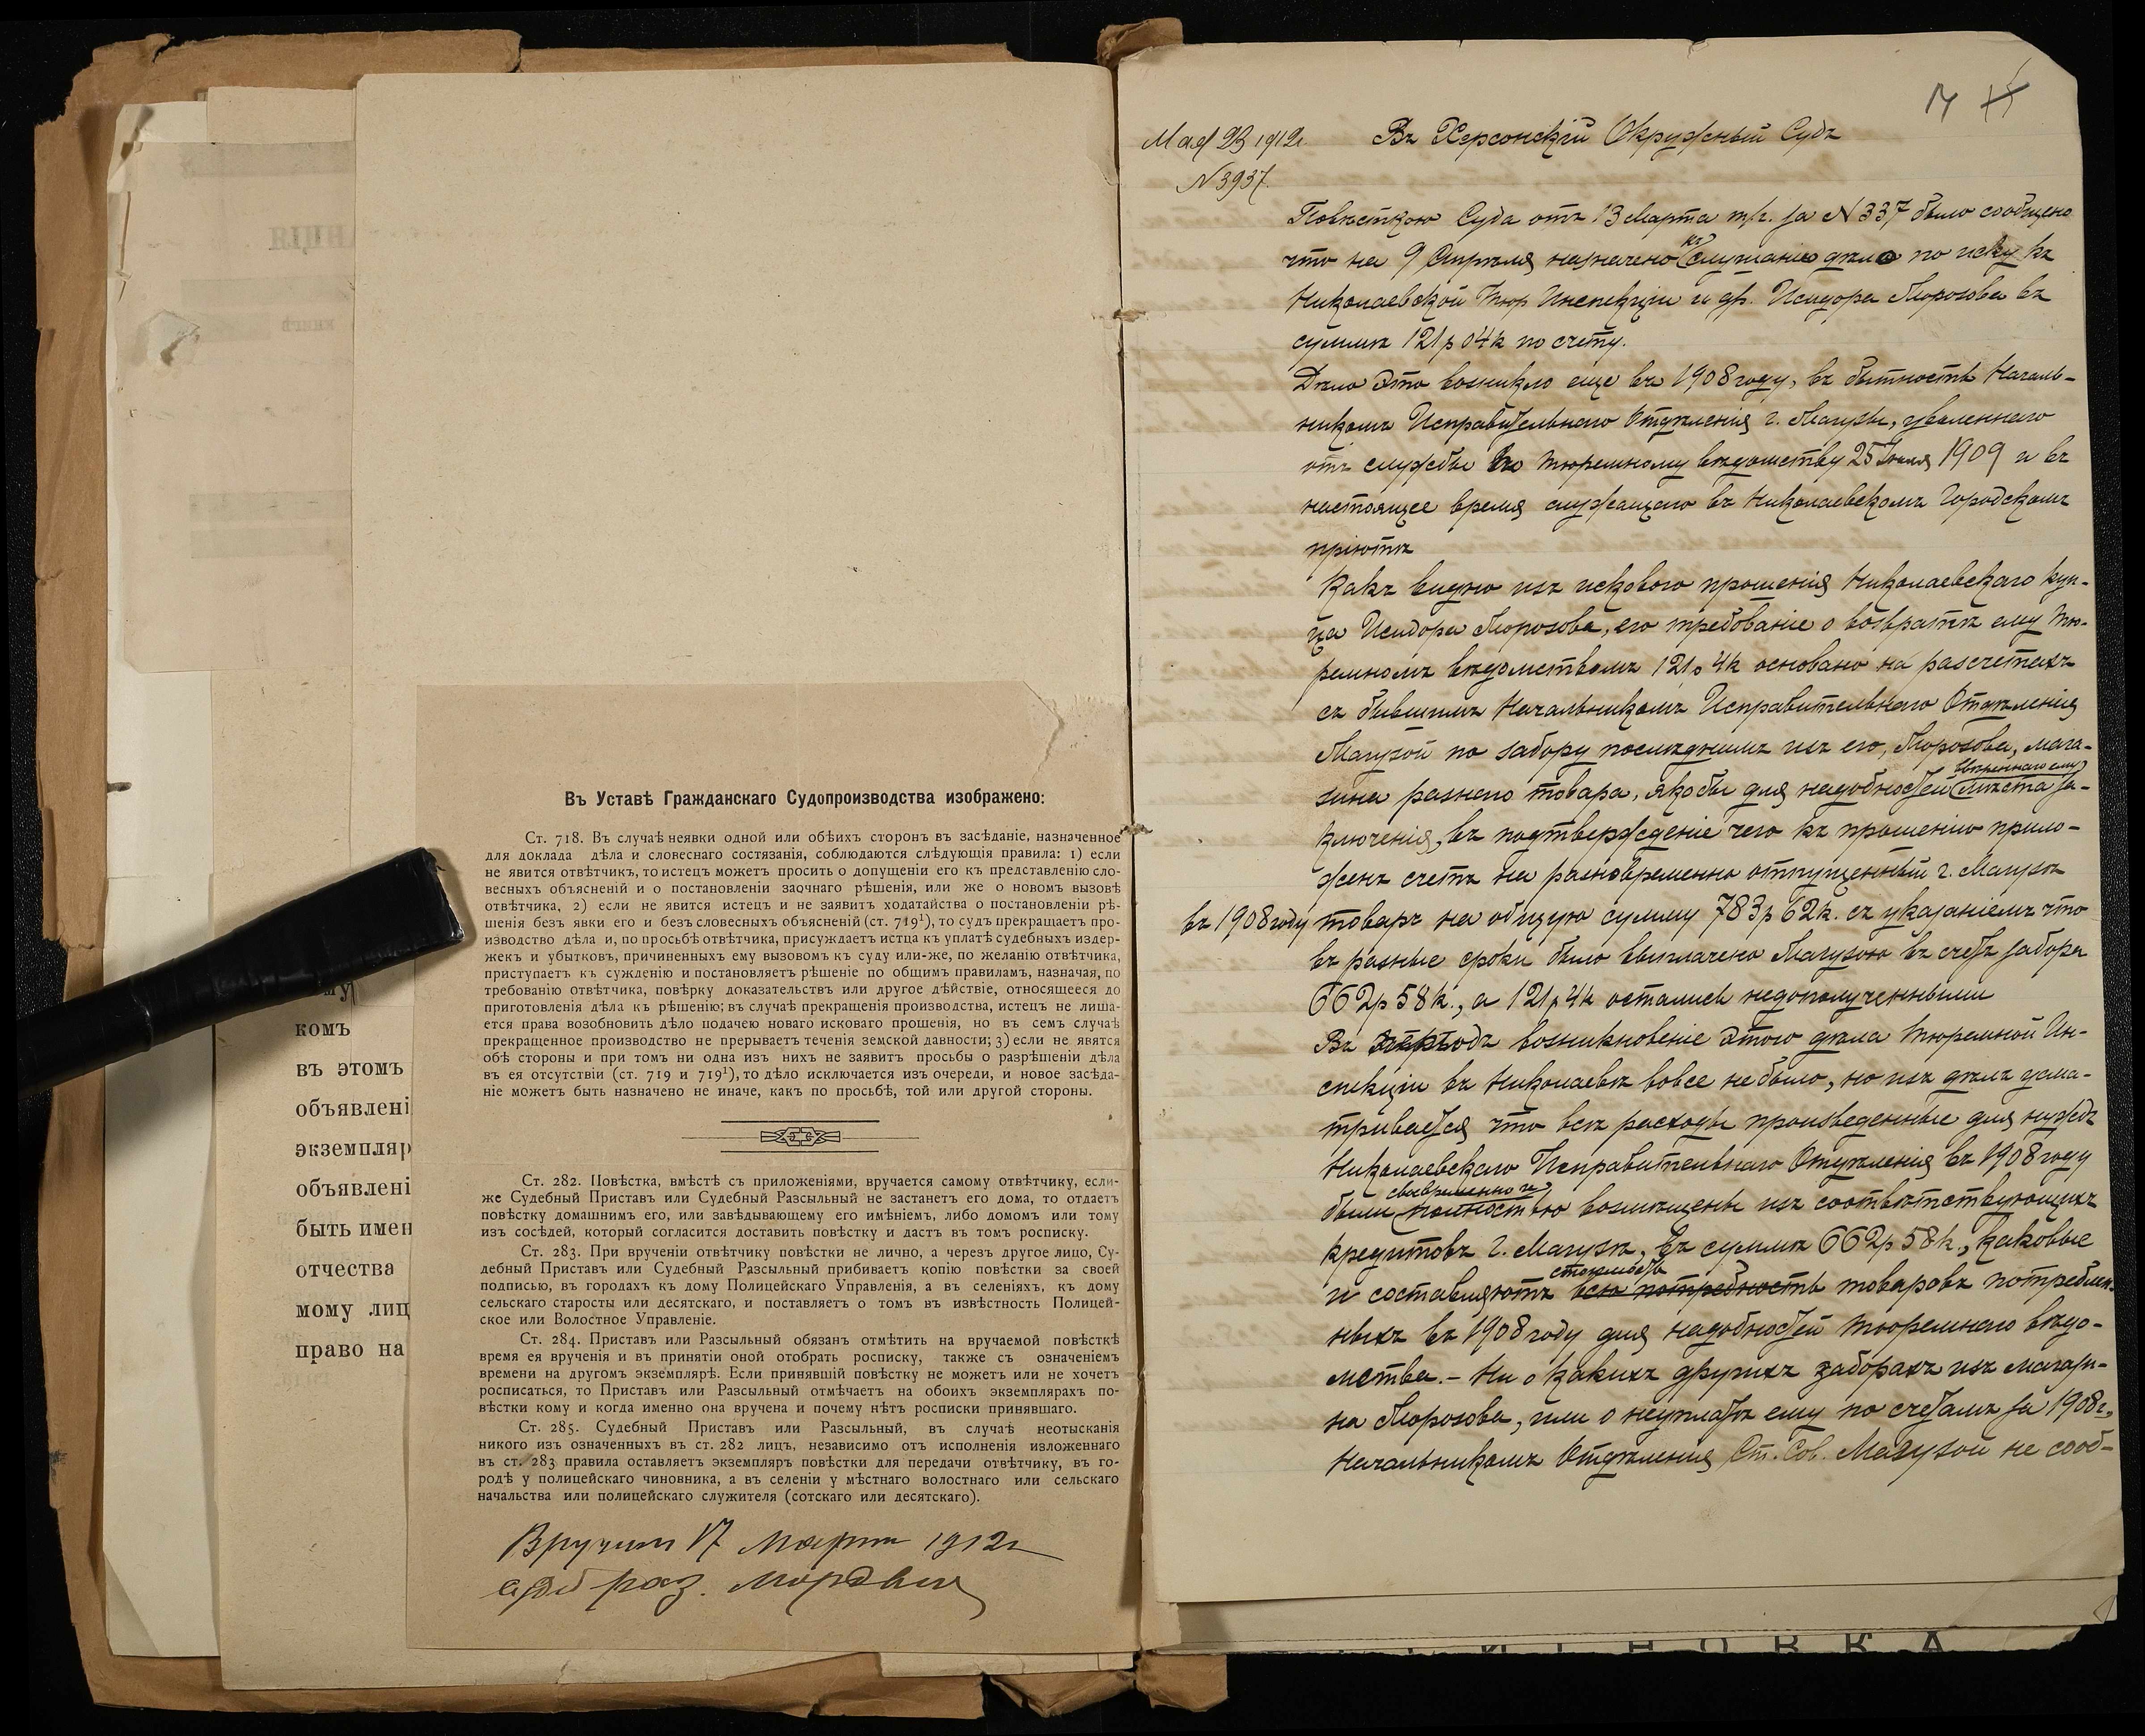 комъ
въ этомъ
объявлені
экземпляр
объявлені
быть имен
отчества
мому лиц
право на
Въ Уставѣ Гражданскаго Судопроизводства изображено:
Ст. 718. Въ случаѣ неявки одной или обѣихъ сторонъ въ засѣданіе, назначенное
для доклада дѣла и словеснаго состязанія, соблюдаются слѣдующія правила: 1) если
не явится отвѣтчикъ, то истецъ можетъ просить о допущеніи его къ представленію сло-
весныхъ объясненій и о постановленіи заочнаго рѣшенія, или же о новомъ вызовѣ
отвѣтчика, 2) если не явится истецъ и не заявитъ ходатайства о постановленіи рѣ-
шенія безъ явки его и безъ словесныхъ объясненій (ст. 719¹), то судъ прекращаетъ про-
изводство дѣла и, по просьбѣ отвѣтчика, присуждаетъ истца къ уплатѣ судебныхъ издер-
жекъ и убытковъ, причиненныхъ ему вызовомъ къ суду или-же, по желанію отвѣтчика,
приступаетъ къ сужденію и постановляетъ рѣшеніе по общимъ правиламъ, назначая, по
требованію отвѣтчика, повѣрку доказательствъ или другое дѣйствіе, относящееся до
приготовленія дѣла къ рѣшенію; въ случаѣ прекращенія производства, истецъ не лиша-
ется права возобновить дѣло подачею новаго исковаго прошенія, но въ семъ случаѣ
прекращенное производство не прерываетъ теченія земской давности; 3) если не явятся
обѣ стороны и при томъ ни одна изъ нихъ не заявитъ просьбы о разрѣшеніи дѣла
въ ея отсутствіи (ст. 719 и 719¹), то дѣло исключается изъ очереди, и новое засѣда-
ніе можетъ быть назначено не иначе, какъ по просьбѣ, той или другой стороны.
Ст. 282. Повѣстка, вмѣстѣ съ приложеніями, вручается самому отвѣтчику, если-
же Судебный Приставъ или Судебный Разсыльный не застанетъ его дома, то отдаетъ
повѣстку домашнимъ его, или завѣдывающему его имѣніемъ, либо домомъ или тому
изъ сосѣдей, который согласится доставить повѣстку и дастъ въ томъ росписку.
Ст. 283. При врученіи отвѣтчику повѣстки не лично, а черезъ другое лицо, Су-
дебный Приставъ или Судебный Разсыльный прибиваетъ копію повѣстки за своей
подписью, въ городахъ къ дому Полицейскаго Управленія, а въ селеніяхъ, къ дому
сельскаго старосты или десятскаго, и поставляетъ о томъ въ извѣстность Полицей-
ское или Волостное Управленіе.
Ст. 284. Приставъ или Разсыльный обязанъ отмѣтить на вручаемой повѣсткѣ
время ея врученія и въ принятіи оной отобрать росписку, также съ означеніемъ
времени на другомъ экземплярѣ. Если принявшій повѣстку не можетъ или не хочетъ
росписаться, то Приставъ или Разсыльный отмѣчаетъ на обоихъ экземплярахъ по-
вѣстки кому и когда именно она вручена и почему нѣтъ росписки принявшаго.
Ст. 285. Судебный Приставъ или Разсыльный, въ случаѣ неотысканія
никого изъ означенныхъ въ ст. 282 лицъ, независимо отъ исполненія изложеннаго
въ ст. 283 правила оставляетъ экземпляръ повѣстки для передачи отвѣтчику, въ го-
родѣ у полицейскаго чиновника, а въ селеніи у мѣстнаго волостнаго или сельскаго
начальства или полицейскаго служителя (сотскаго или десятскаго).
Вручилъ 17 марта 1912 г
раз.
Мая 23 1912 г. Въ Херсонскій Окружный Судъ
N 3937.
Повѣсткою Суда отъ 13 Марта т/г. за N 337 было сообщено
что на 9 Апрѣля назначено къ слушанію дѣло по иску къ
Николаевской Тюр Инспекціи и др. Исидора Морозова въ
суммѣ 121 р 04 к по счету.
Дѣло это возникло еще въ 1908 году, въ бытность Началь-
никомъ Исправительнаго Отдѣленія г. Магузы, уволеннаго
отъ службы по тюремному вѣдомству 25 Іюля 1909 и въ
настоящее время служащаго въ Николаевскомъ Городскомъ
пріютѣ
Какъ видно изъ искового прошенія Николаевскаго куп-
ца Исидора Морозова, его требованіе о возвратѣ ему Тю-
ремномъ вѣдомствомъ 121 р 4 к основано на расчетахъ
съ бывшимъ Начальникомъ Исправительнаго Отдѣленія
Магузой по забору послѣднимъ изъ его, Морозова, мага-
зина разнаго товара, якобы для надобностей ввѣреннаго ему мѣста за-
ключенія, въ подтвержденіе чего къ прошенію прило-
женъ счетъ на разновременно отпущенный г. Магузѣ
въ 1908 году товаръ на общую сумму 783 р 62 к. съ указаніемъ что
въ разные сроки было выплачено Магузою въ счетъ забора
662 р 58 к., а 121 р 4 к остались недополученными
Въ возникновеніе этого дѣла Тюремной Ин-
спекціи въ Николаевѣ вовсе не было, но изъ дѣлъ усма-
тривается что всѣ расходы произведенные для нуждъ
Николаевскаго Исправительнаго Отдѣленія въ 1908 году
были своевременно и полностью возмѣщены изъ соотвѣтствующихъ
кредитовъ г. Магузѣ, въ суммѣ 662 р 58 к., каковые
и составляютъ стоимость всю потребность товаровъ потреблен-
ныхъ въ 1908 году для надобностей тюремнаго вѣдо-
мства. - Ни о какихъ другихъ заборахъ изъ магази-
на Морозова, или о неуплатѣ ему по счетамъ за 1908 г.,
Начальникомъ Отдѣленія Ст. Сов. Магузой не сооб-